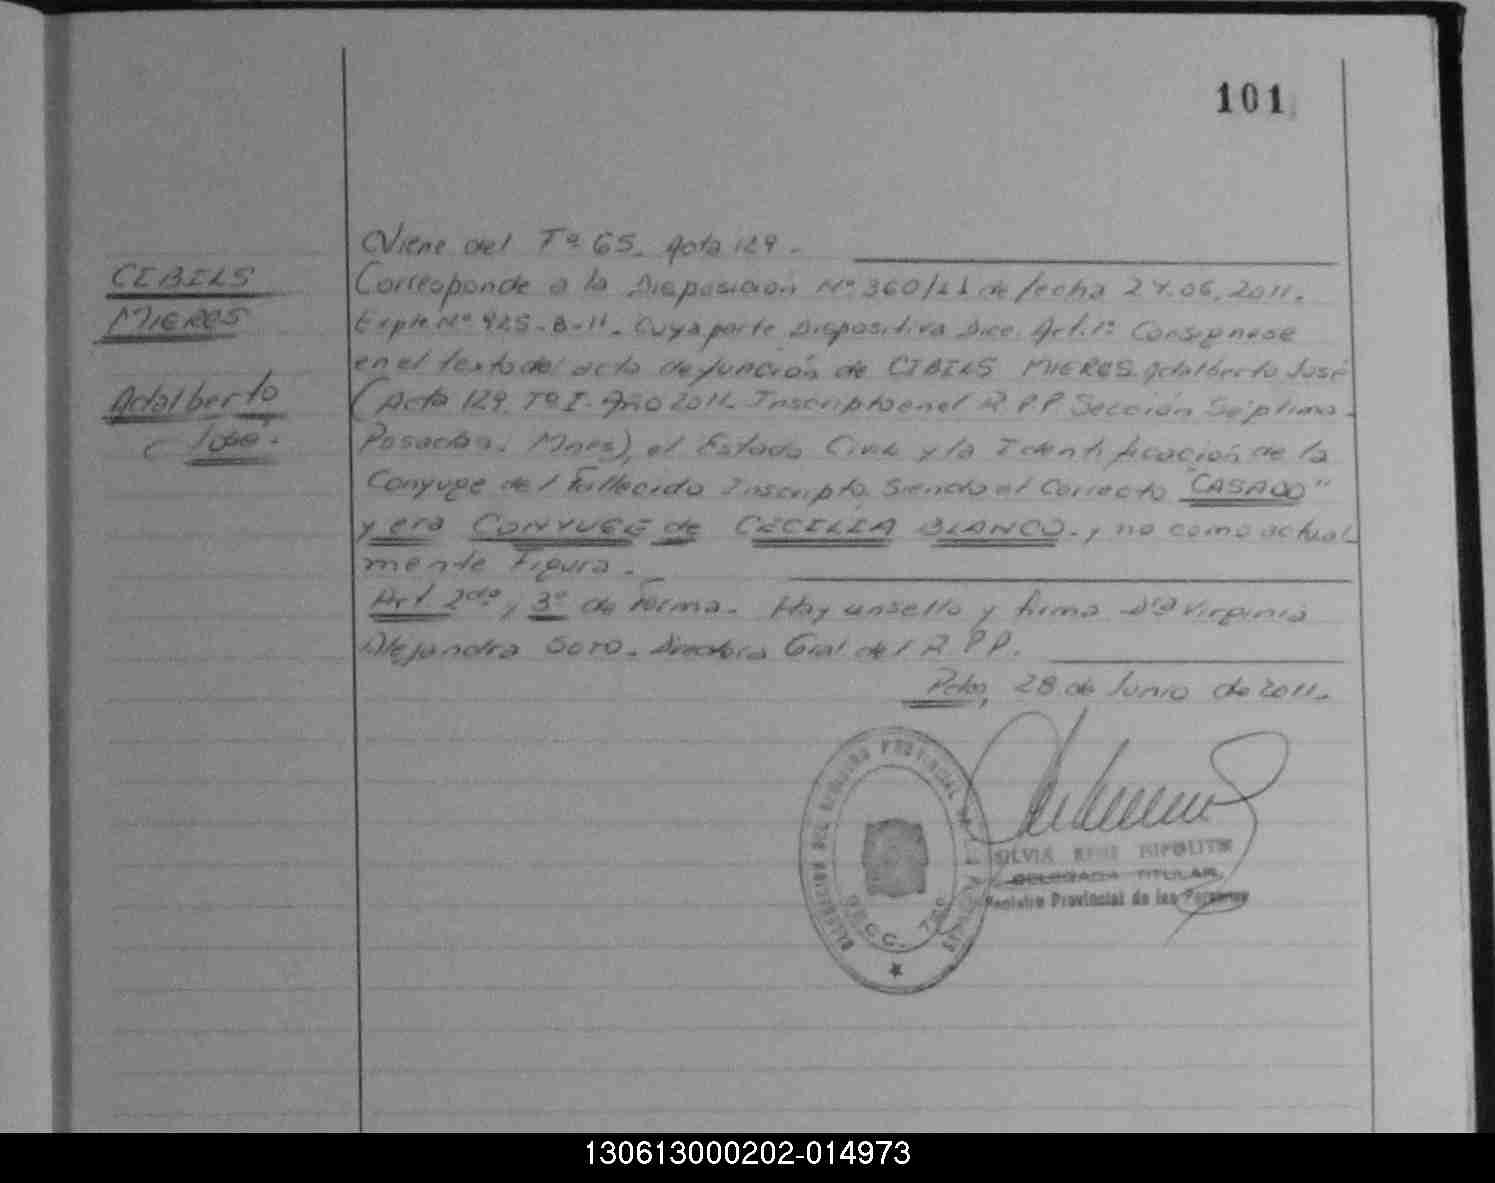 101
CIBILS
MIERES
Adalberto
José.
Viene del Tº 65. Acta 129.
Corresponde a la Disposición Nº 360/11 de fecha 24.06.2011.
Expte Nº 925-B-11. Cuya parte Dispositiva Dice. Art. 1º Consignese
en el texto del acta defunción de CIBILS MIERES Adalberto José
(Acta 129. Tº I. Año 2011. Inscripta en el R P P Sección Séptima.
Posadas. Mnes), el Estado Civil y la Identificación de la
Conyuge del Fallecido Inscripto, Siendo el Correcto "CASADO"
y era CONYUGE de CECILIA BLANCO. y no como actual
mente Figura.
Art 2do, 3º de Forma. Hay un sello y firma Dra Virginia
Alejandra Soro. Directora Gral del R P P.
Pdas, 28 de Junio de 2011.
DIRECCION DEL REGISTRO PROVINCIAL DE LAS PERSONAS
SECC. 7
SILVIA HIPOLITO
DELEGADA TITULAR
Registro Provincial de las Personas
130613000202-014973